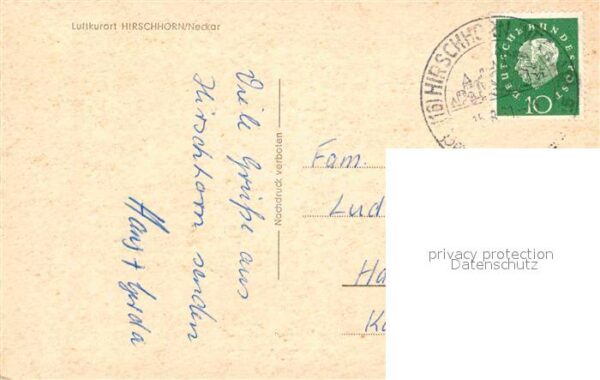 Luftkurort HIRSCHHORN/Neckar
Viele Grüße aus
Hirschhorn senden
Hans + Gerda
Nachdruck verboten
(16) HIRSCHHO
DEUTSCHE BUNDESPOST
10
Fam.
Lud
Ha
privacy protection
Datenschutz